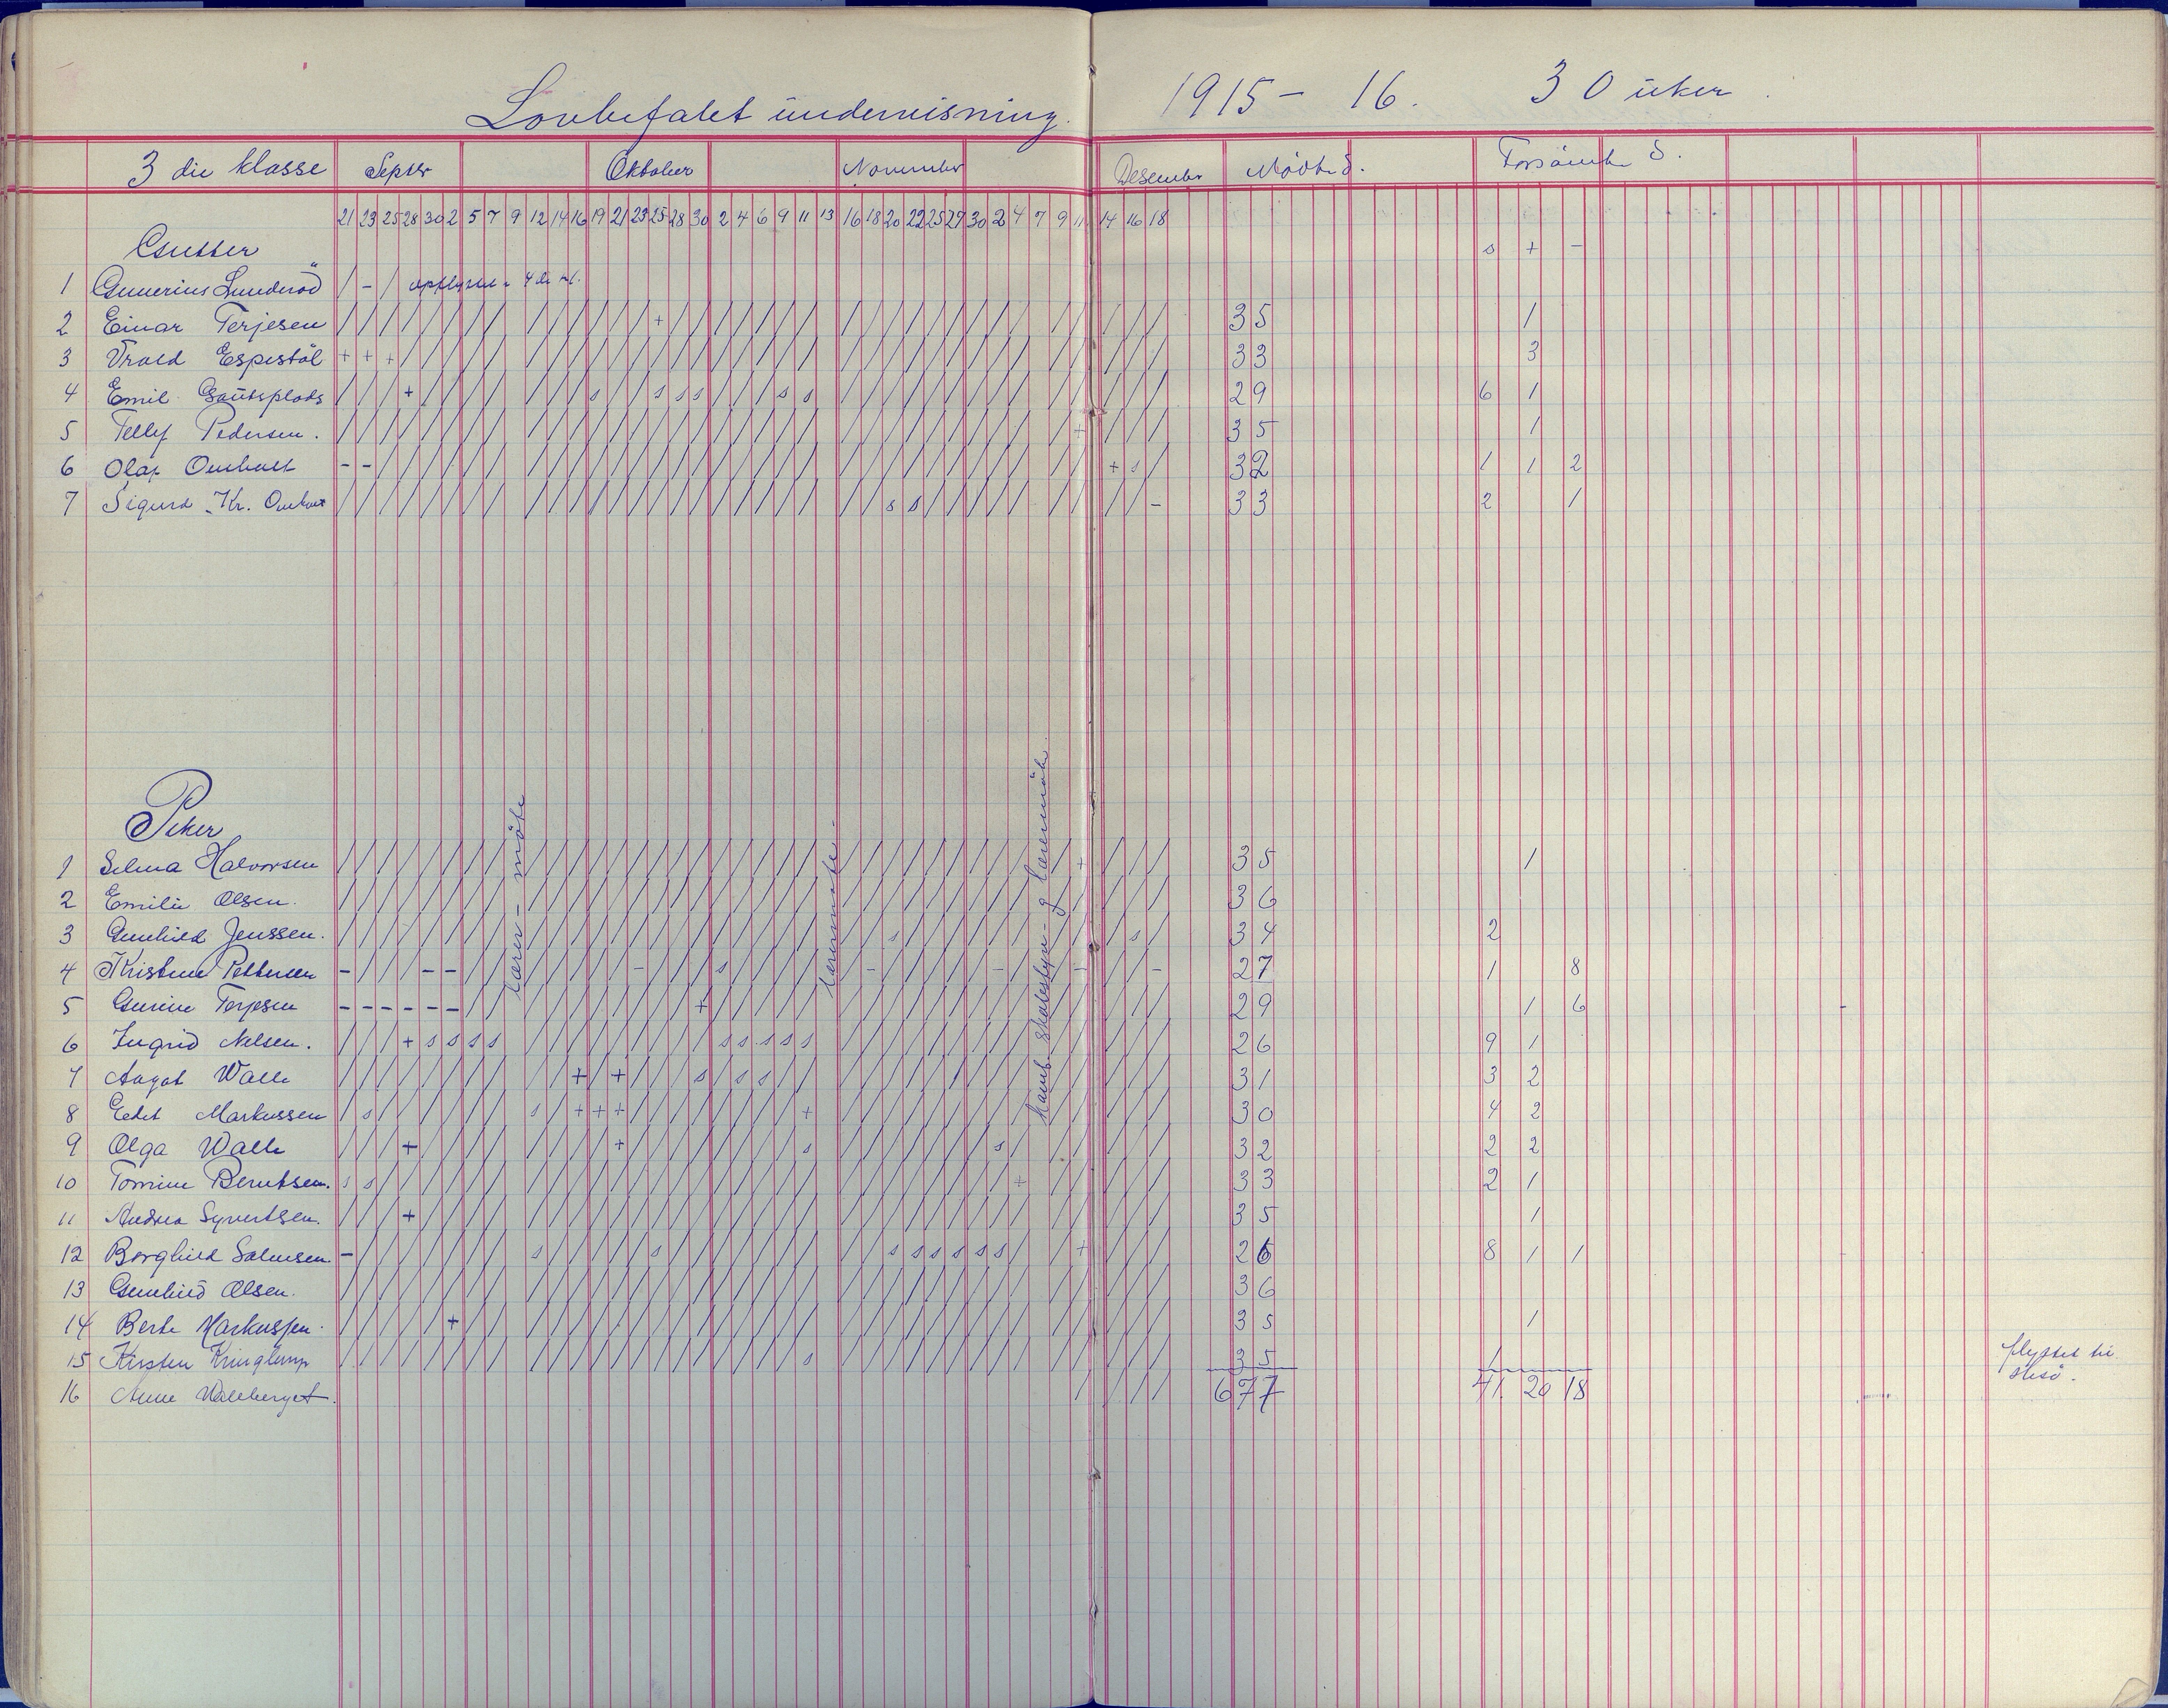 Lovbefalet undervisning. 1915 - 16. 30 uker.
3 die klasse Septbr Oktober November Desember Mödte d. Forsömte d.
21 23 25 28 30 2 5 7 9 12 14 16 19 21 23 25 28 30 2 4 6 9 11 13 16 18 20 22 25 27 30 2 4 7 9 11 14 16 18
Gutter s + -
1 Gunerius Lunderöd / - / opflyttet i 4de kl.
2 Einar Terjesen / / / / / / / / / / / / / / + / / / / / / / / / / / / / / / / / / / / / 35 1
3 Vrald Espestöl + + + / / / / / / / / / / / / / / / / / / / / / / / / / / / / / / / / / 33 3
4 Emil Gautsplads / / / + / / / / / / / s / / s s s / / / s s / / / / / / / / / / / / / / 29 6 1
5 Tellef Pedersen. / / / / / / / / / / / / / / / / / / / / / / / / / / / / / / / / + / / / 35 1
6 Olaf Omholt - - / / / / / / / / / / / / / / / / / / / / / / / / / / / / / / / + s / 32 1 1 2
7 Sigurd Kr. Omholt / / / / / / / / / / / / / / / / / / / / / / / / s s / / / / / / / / / - 33 2 1
Piker
lærer-möte
lærermöte.
komb. skolestyre- og lærermöte.
1 Selma Halvorsen / / / / / / / / / / / / / / / / / / / / / / / / / / / / / / / / + / / / 35 1
2 Emilie Olsen. / / / / / / / / / / / / / / / / / / / / / / / / / / / / / / / / / / / / 36
3 Gunhild Jenssen. / / / / / / / / / / / / / / / / / / / / / / / / s / / / / / / / / / s / 34 2
4 Kristine Pettersen - / / / - - / / / / / / / - / / / s / / / / / - / / / / / - / / - / / - 27 1 8
5 Gurine Terjesen - - - - - - / / / / / / / / / / + / / / / / / / / / / / / / / / / / / / 29 1 6
6 Ingrid Nelsen. / / / + s s s s / / / / / / / / / s s s s s / / / / / / / / / / / / / / 26 9 1
7 Aagot Walle / / / / / / / / / / + / + / / / s / s s / / / / / / / / / / / / / / / / 31 3 2
8 Edel Markussen / s / / / / / / s / + + + / / / / / / / / + / / / / / / / / / / / / / / 30 4 2
9 Olga Walle / / / + / / / / / / / / + / / / / / / / / s / / / / / / / s / / / / / / 32 2 2
10 Tomine Berntsen. s s / / / / / / / / / / / / / / / / / / / / / / / / / / / / + / / / / / 33 2 1
11 Andrea Syvertsen. / / / + / / / / / / / / / / / / / / / / / / / / / / / / / / / / / / / / 35 1
12 Borghild Salvesen. - / / / / / / / s / / / / / s / / / / / / / / / s s s s s s / / + / / / 26 8 1 1
13 Gunhild Olsen. / / / / / / / / / / / / / / / / / / / / / / / / / / / / / / / / / / / / 36
14 Berte Markussen. / / / / / + / / / / / / / / / / / / / / / / / / / / / / / / / / / / / / 35 1
15 Kirsten Kringlemyr / / / / / / / / / / / / / / / / / / / / / s / / / / / / / / / / / / / / 35 1 flyttet til
16 Anne Walleberget. / / / / 677 41. 20 18